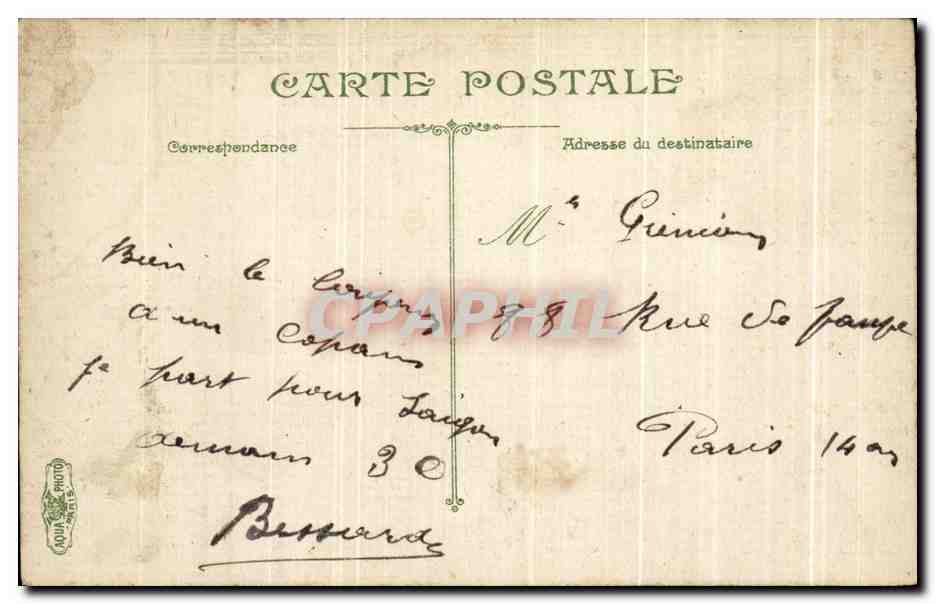 CARTE POSTALE
Correspondance
Bien le
a un copain
Je part pour Saigon
demain 30
Bessard
Adresse du destinataire
Mr
88 Rue de
Paris 14 ar
AQUA PHOTO
PARIS
CPAPHIL